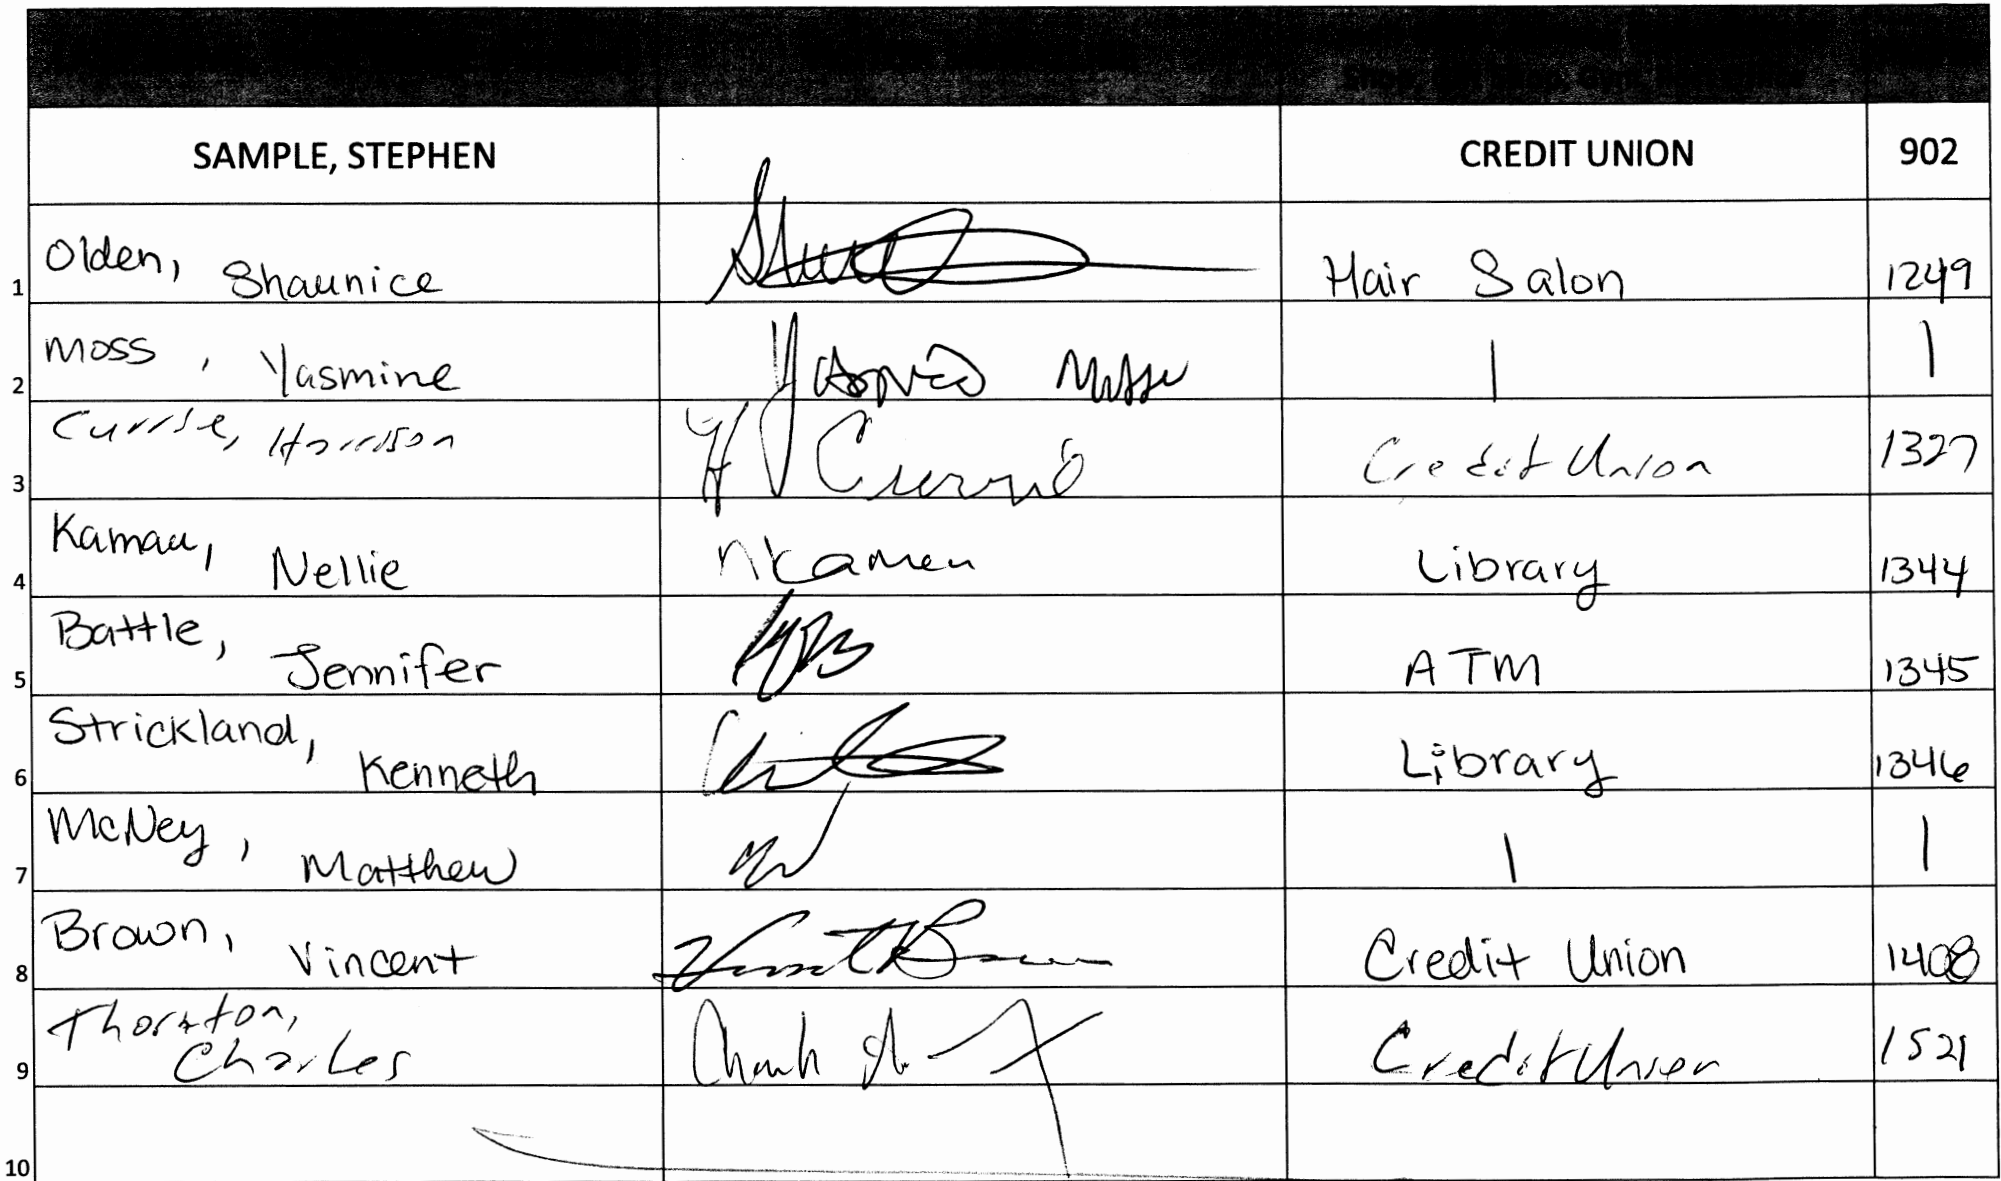 SAMPLE, STEPHEN CREDIT UNION 902
1 Olden, Shaunice Hair Salon 1249
2 Moss, Yasmine | |
3 Currie, Harrison H Currie Credit Union 1327
4 Kamau, Nellie nkamau Library 1344
5 Battle, Jennifer ATM 1345
6 Strickland, Kenneth Library 1346
7 McNey, Matthew | |
8 Brown, Vincent Vincent Brown Credit Union 1408
9 Thornton, Charles Credit Union 1521
10